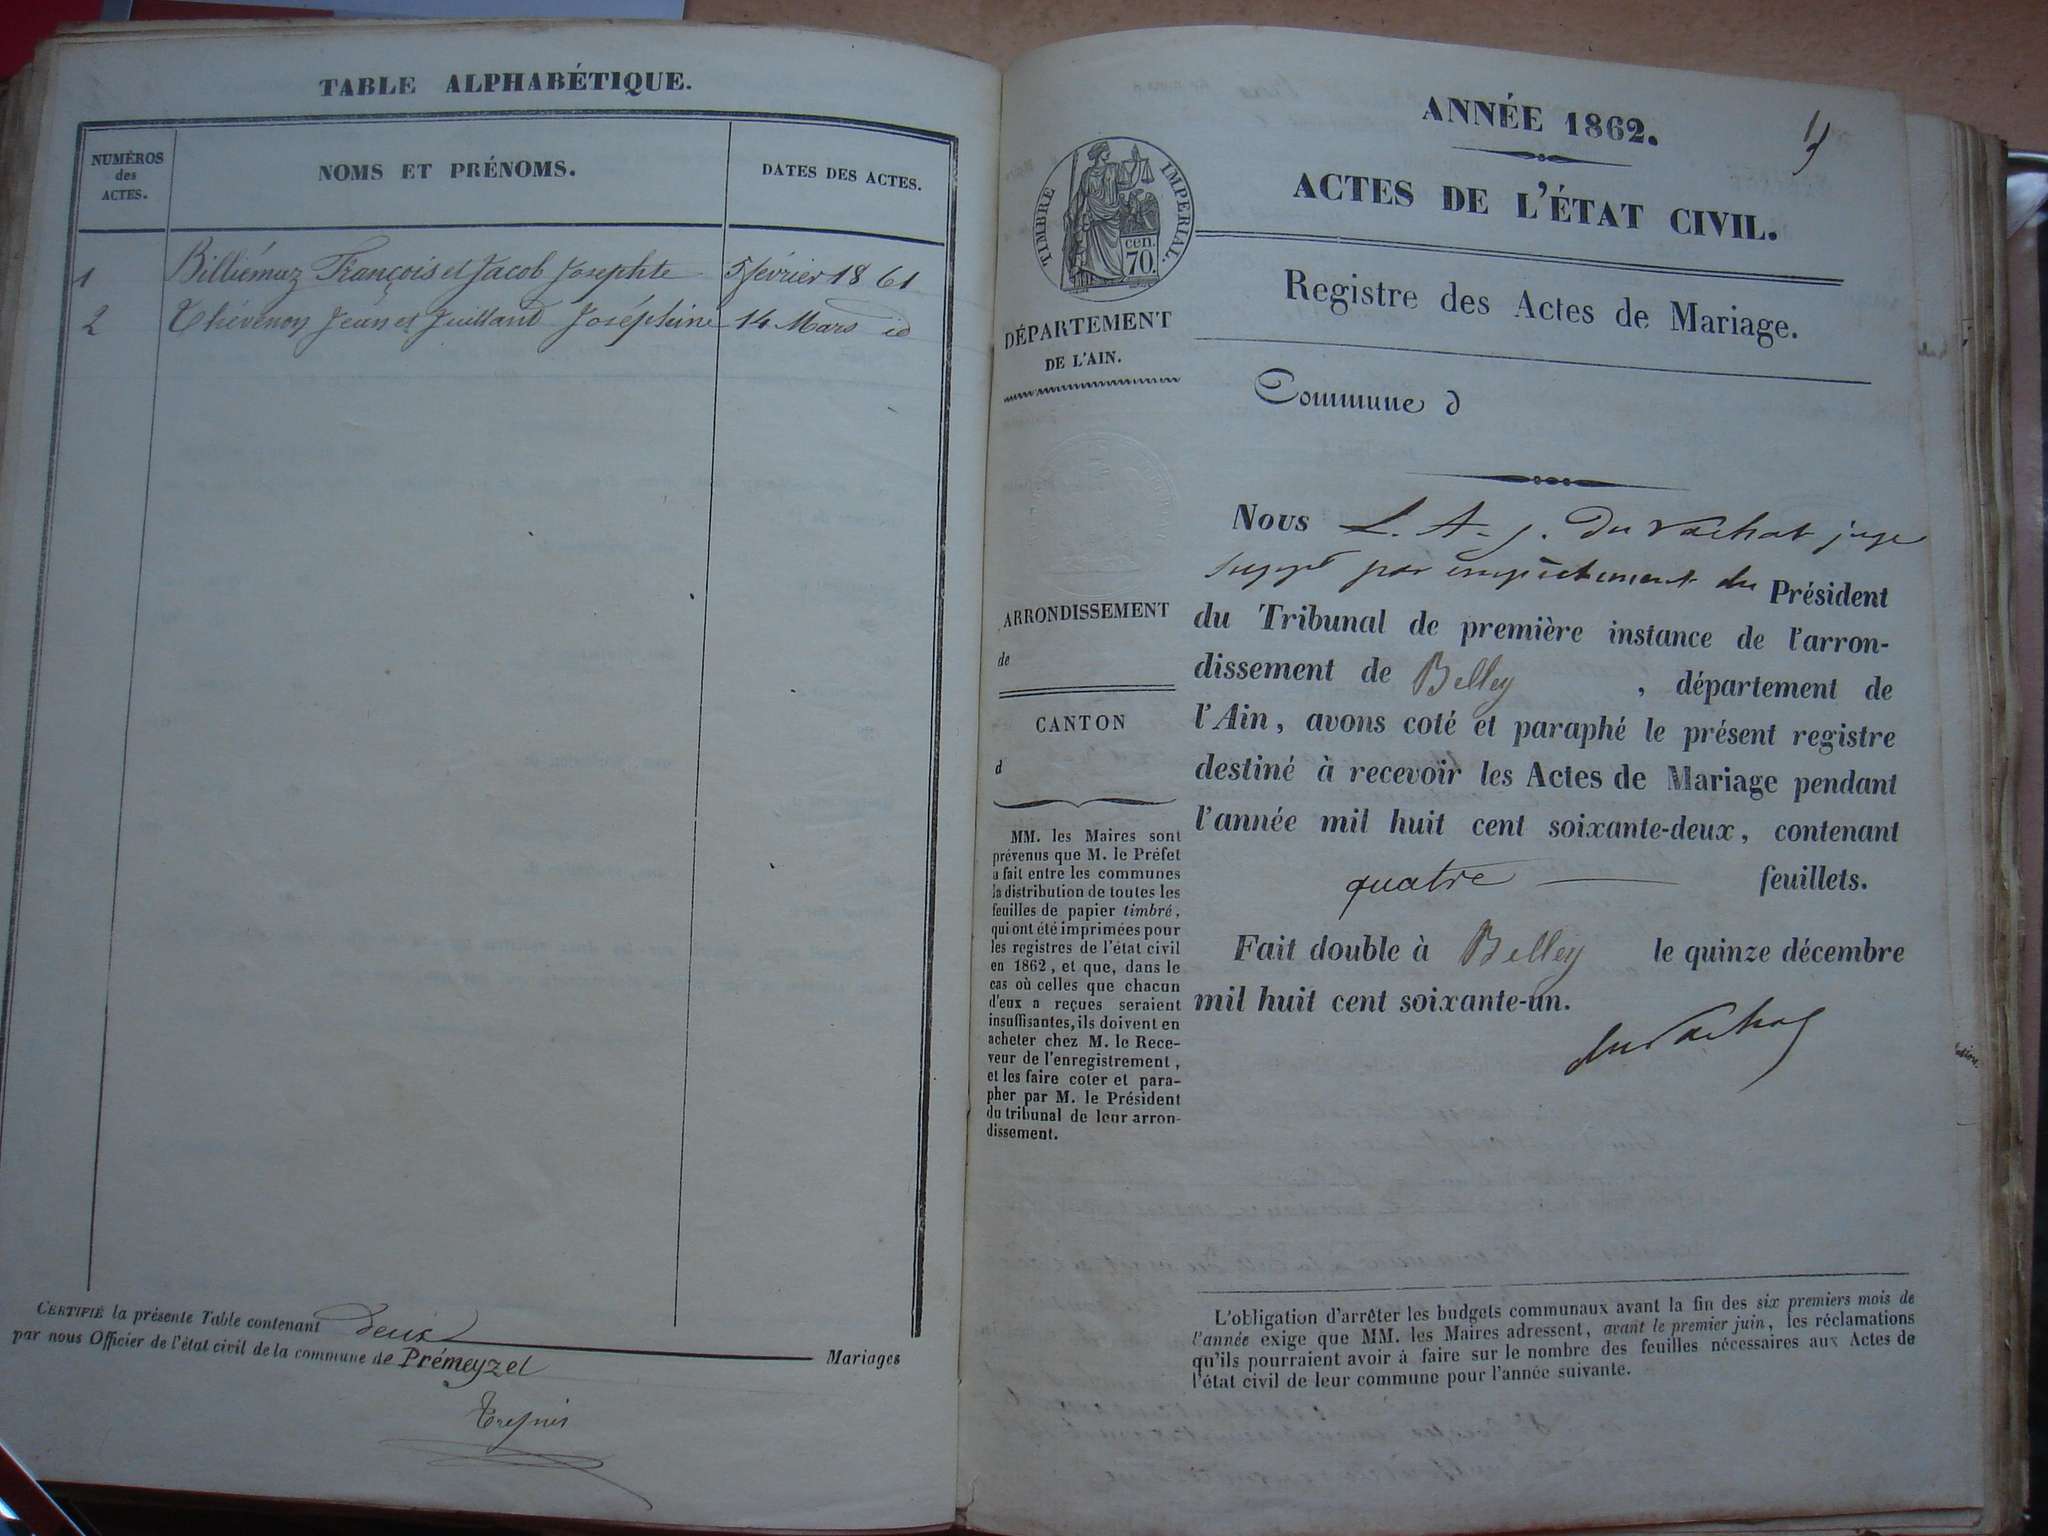 TABLE ALPHABÉTIQUE.
NUMÉROS
des
ACTES.
NOMS ET PRÉNOMS.
DATES DES ACTES.
1 Billiémaz François et Jacob Josephte 5 février 1861
2 Thévenon Jean et Juilland Joséphine 14 Mars id
CERTIFIÉ la présente Table contenant deux Mariages
par nous Officier de l'état civil de la commune de Prémeyzel
ANNÉE 1862.
ACTES DE L'ÉTAT CIVIL.
TIMBRE IMPERIAL.
cen.
70.
Registre des Actes de Mariage.
DÉPARTEMENT
DE L'AIN.
Commune d
ARRONDISSEMENT
de
CANTON
d
MM. les Maires sont
prévenus que M. le Préfet
a fait entre les communes
la distribution de toutes les
feuilles de papier timbré,
qui ont été imprimées pour
les registres de l'état civil
en 1862, et que, dans le
cas où celles que chacun
d'eux a reçues seraient
insuffisantes, ils doivent en
acheter chez M. le Rece-
veur de l'enregistrement,
et les faire coter et para-
pher par M. le Président
du tribunal de leur arron-
dissement.
Nous L. A. J. Du Vachat juge
suppt par empêchement du Président
du Tribunal de première instance de l'arron-
dissement de Belley, département de
l'Ain, avons coté et paraphé le présent registre
destiné à recevoir les Actes de Mariage pendant
l'année mil huit cent soixante-deux, contenant
quatre feuillets.
Fait double à Belley le quinze décembre
mil huit cent soixante-un.
du Vachat
L'obligation d'arrêter les budgets communaux avant la fin des six premiers mois de
l'année exige que MM. les Maires adressent, avant le premier juin, les réclamations
qu'ils pourraient avoir à faire sur le nombre des feuilles nécessaires aux Actes de
l'état civil de leur commune pour l'année suivante.